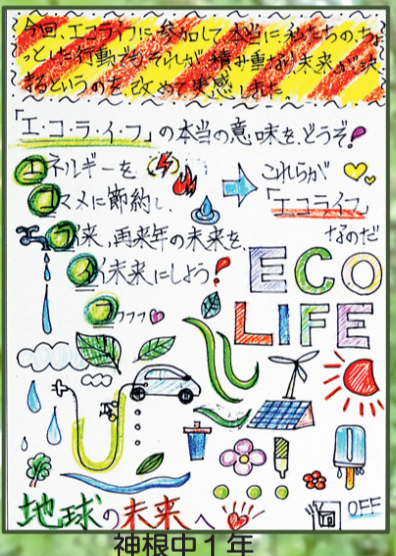 今回、エコライフに参加して本当に私たちのちょ
っとした行動でも、それが積み重なり未来が決
まるというのを改めて実感しました
「エ・コ・ラ・イ・フ」の本当の意味を、どうぞ!
エネルギーを
コマメに節約し、
ライ来,再来年の未来を、
イイ未来にしよう!
フフフフ
これらが
「エコライフ」
なのだ
ECO
LIFE
地球の未来へ
OFF
神根中1年